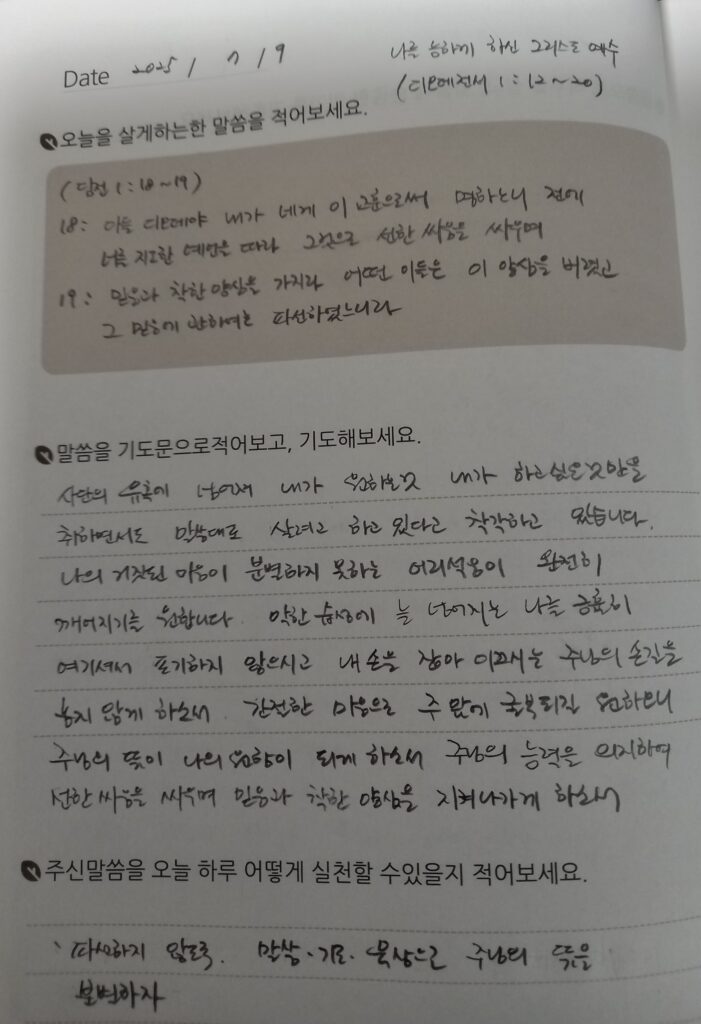 Date 2025 / 7 / 9
나를 능하게 하신 그리스도 예수
(디모데전서 1:12~20)
오늘을 살게하는한 말씀을 적어보세요.
(딤전 1:18~19)
18: 아들 디모데야 내가 네게 이 교훈으로써 명하노니 전에
너를 지도한 예언을 따라 그것으로 선한 싸움을 싸우며
19: 믿음과 착한 양심을 가지라 어떤 이들은 이 양심을 버렸고
그 믿음에 관하여는 파선하였느니라
말씀을 기도문으로적어보고, 기도해보세요.
사단의 유혹에 넘어져 내가 원하는것 내가 하고싶은것만을
취하면서도 말씀대로 살려고 하고 있다고 착각하고 있습니다.
나의 거짓된 마음이 분별하지 못하는 어리석음이 완전히
깨어지기를 원합니다. 악한 습성에 늘 넘어지는 나를 긍휼히
여기셔서 포기하지 않으시고 내 손을 잡아 이끄시는 주님의 손길을
놓지 않게 하소서. 간절한 마음으로 주 앞에 굴복되길 원하오니
주님의 뜻이 나의 방향이 되게 하소서 주님의 능력을 의지하여
선한 싸움을 싸우며 믿음과 착한 양심을 지켜나가게 하소서
주신말씀을 오늘 하루 어떻게 실천할 수있을지 적어보세요.
파선하지 않도록. 말씀·기도·묵상으로 주님의 뜻을
분별하자